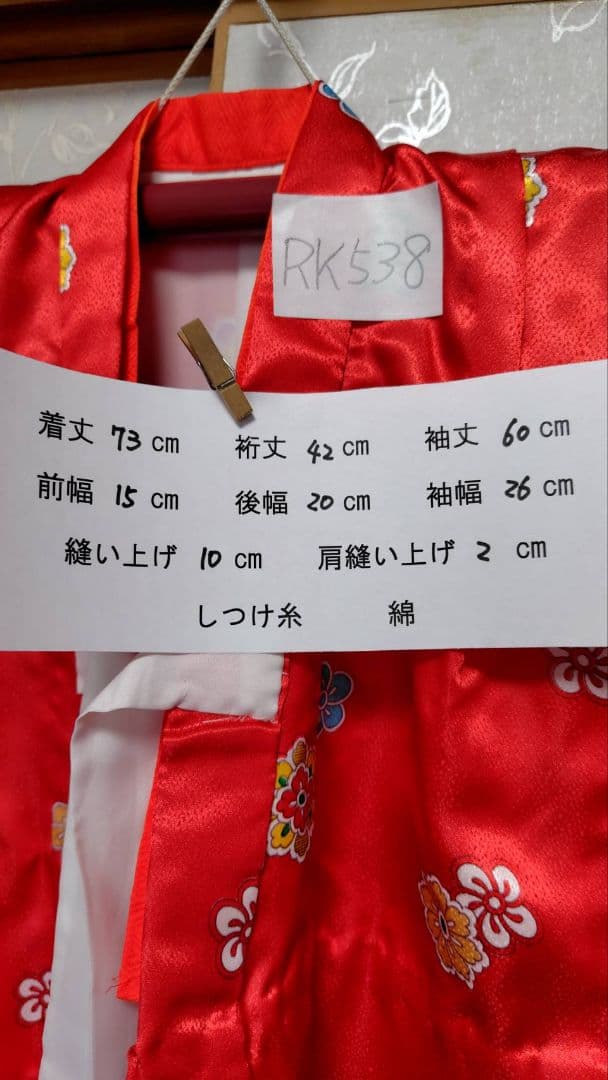 RK538
着丈 73 cm 裄丈 42 cm 袖丈 60 cm
前幅 15 cm 後幅 20 cm 袖幅 26 cm
縫い上げ 10 cm 肩縫い上げ 2 cm
しつけ糸 綿